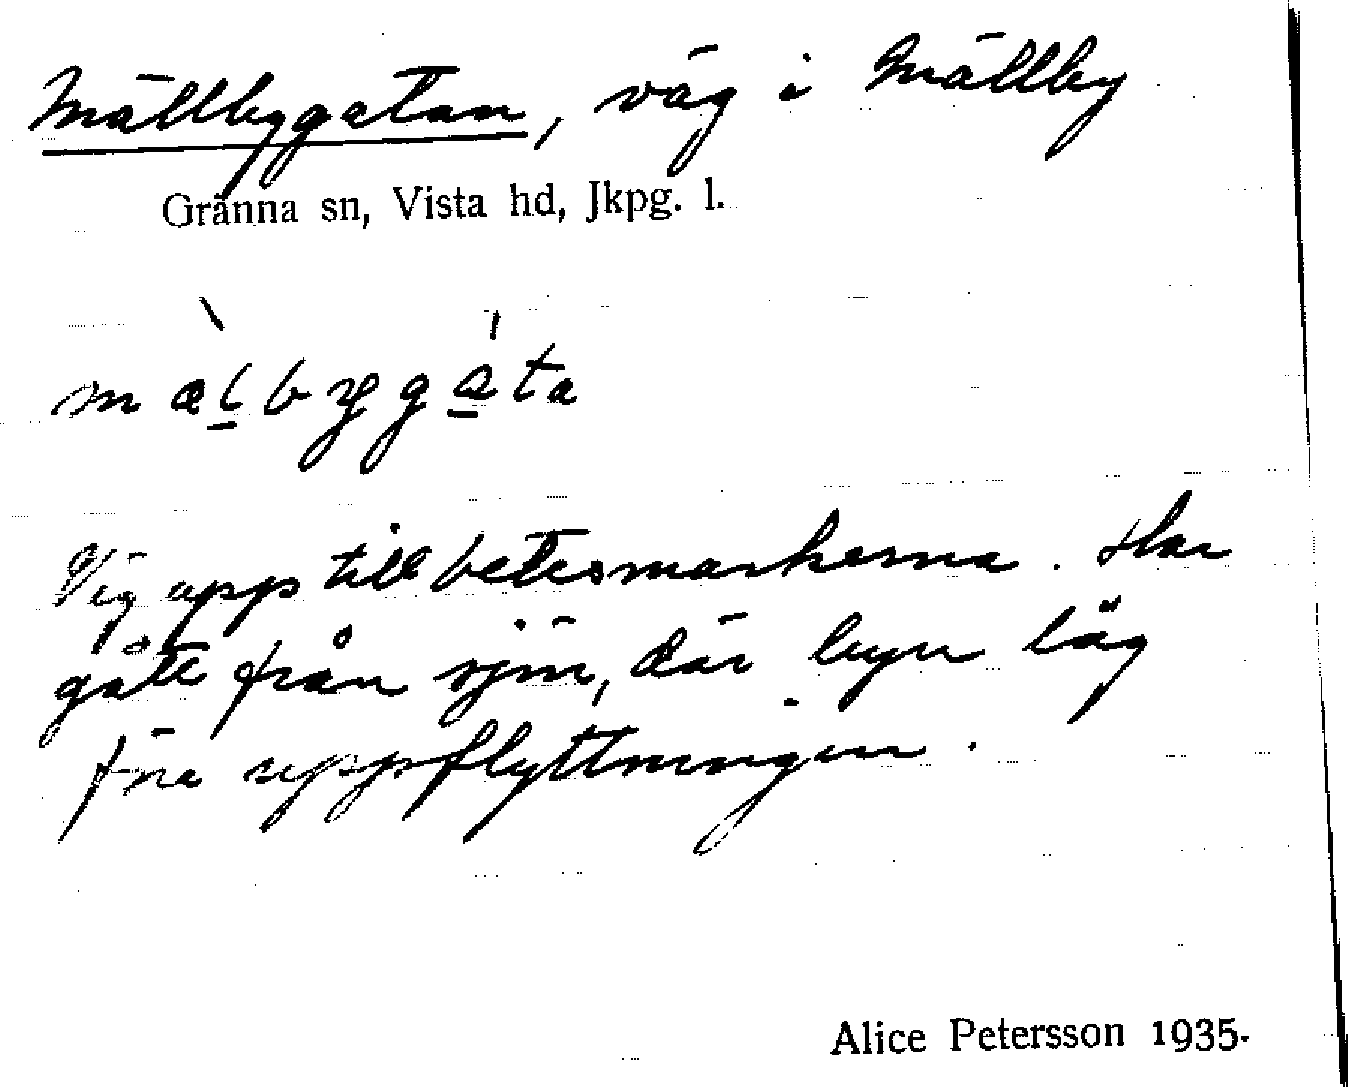 Mällbygatan, väg i Mällby
Gränna sn, Vista hd, Jkpg. l.
mælbygata
Väg upp till betesmarkerna. Har
gått från sjön, där byn låg
före uppflyttningen.
Alice Petersson 1935.